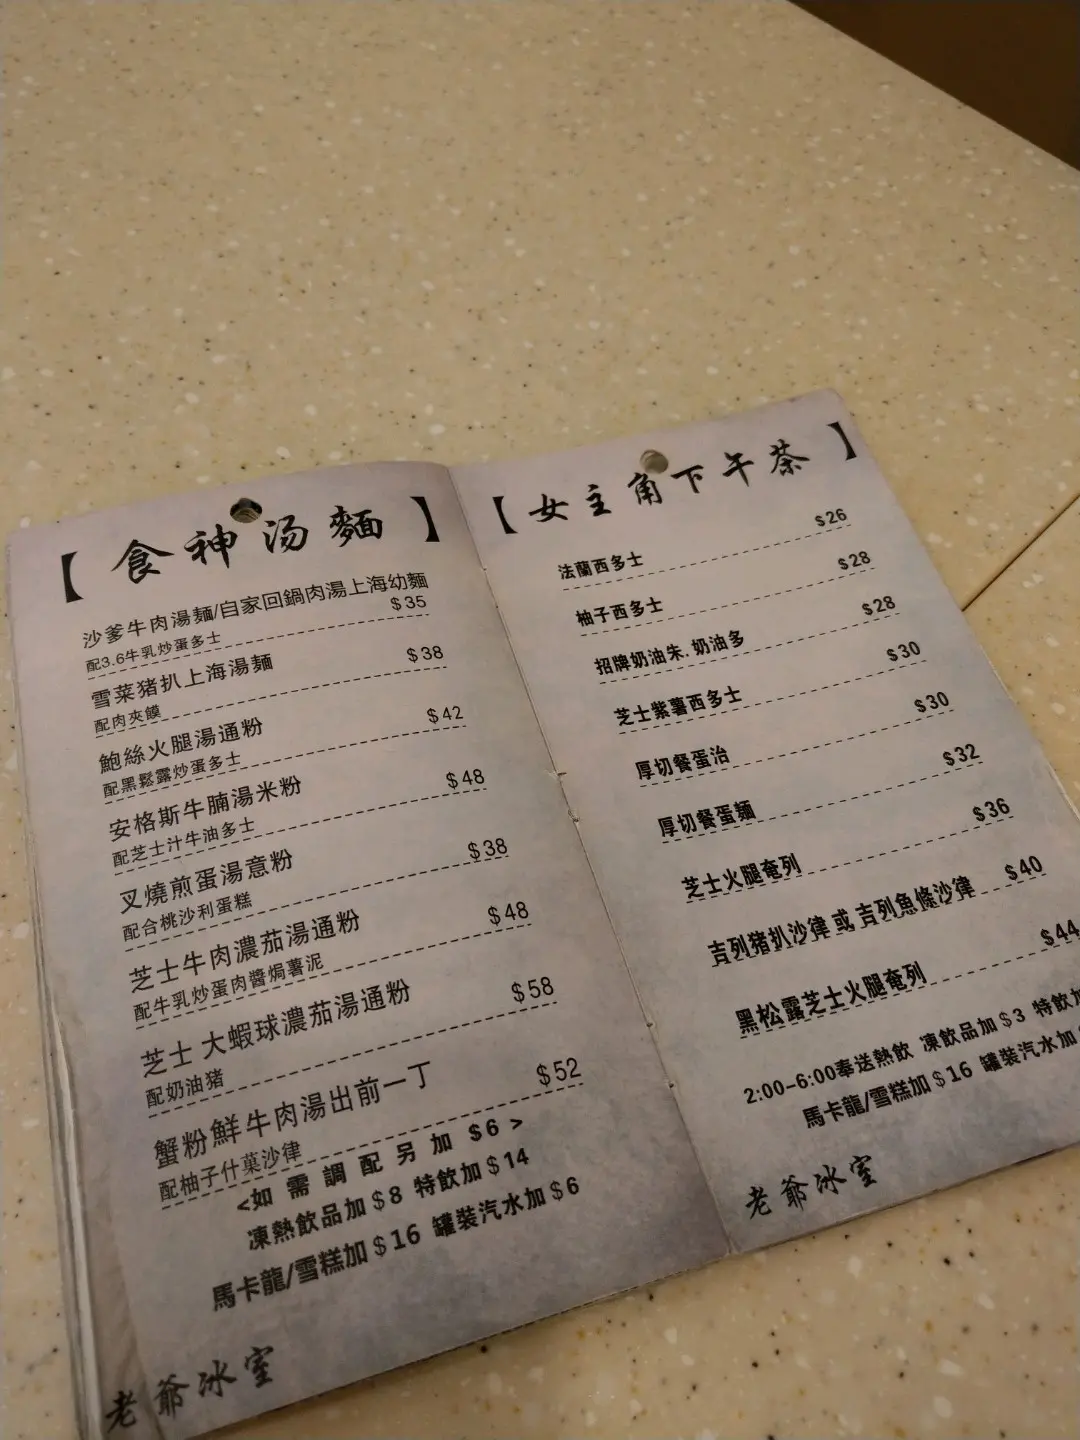 【食神汤麵】
沙爹牛肉湯麵/自家回鍋肉湯上海幼麵
配3.6牛乳炒蛋多士 $35
雪菜猪扒上海湯麵 $38
配肉夾饃
鮑絲火腿湯通粉 $42
配黑鬆露炒蛋多士
安格斯牛腩湯米粉 $48
配芝士汁牛油多士
叉燒煎蛋湯意粉 $38
配合桃沙利蛋糕
芝士牛肉濃茄湯通粉 $48
配牛乳炒蛋肉醬焗薯泥
芝士 大蝦球濃茄湯通粉 $58
配奶油猪
蟹粉鮮牛肉湯出前一丁 $52
配柚子什菓沙律
<如需調配另加 $6 >
凍熱飲品加$8 特飲加$14
馬卡龍/雪糕加$16 罐裝汽水加$6
老爺冰室
【女主角下午茶】
法蘭西多士 $26
柚子西多士 $28
招牌奶油朱.奶油多 $28
芝士紫薯西多士 $30
厚切餐蛋治 $30
厚切餐蛋麵 $32
芝士火腿奄列 $36
吉列猪扒沙律 或 吉列魚條沙律 $40
黑松露芝士火腿奄列 $44
2:00-6:00奉送熱飲 凍飲品加$3 特飲加
馬卡龍/雪糕加$16 罐裝汽水加
老爺冰室